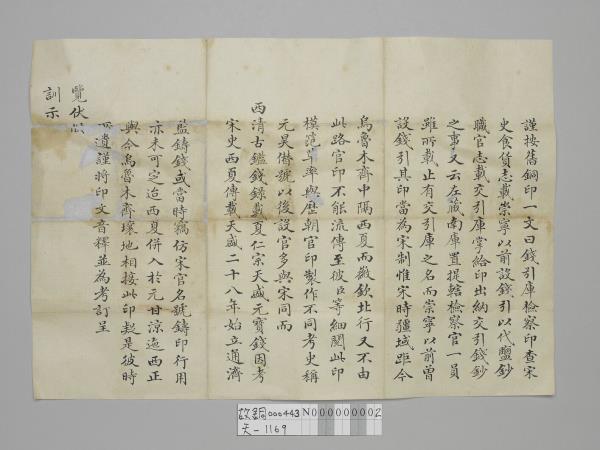 謹按舊銅印一文曰錢引庫檢察印查宋
史食貨志載崇寧以前設錢引以代鹽鈔
職官志載交引庫掌給印出納交引錢鈔
之事又云左藏南庫置提轄檢察官一員
雖所載止有交引庫之名而崇寧以前曾
設錢引其印當為宋制惟宋時疆域距今
烏魯木齊中隔西夏而徽欽北行又不由
此路官印不能流傳至彼臣等細閱此印
模範草率與歷朝官印製作不同考史稱
元昊僭號以後設官多與宋同而
西清古鑑錢錄載夏仁宗天盛元寶錢因考
宋史西夏傳載天盛二十八年始立通濟
監鑄錢或當時竊仿宋官名號鑄印行用
亦未可定迨西夏併入於元甘涼迤西正
與今烏魯木齊壤地相接此印疑是彼時
遺謹將印文音釋並為考訂呈
覽伏
訓示
故銅000443N000000002
天-1169